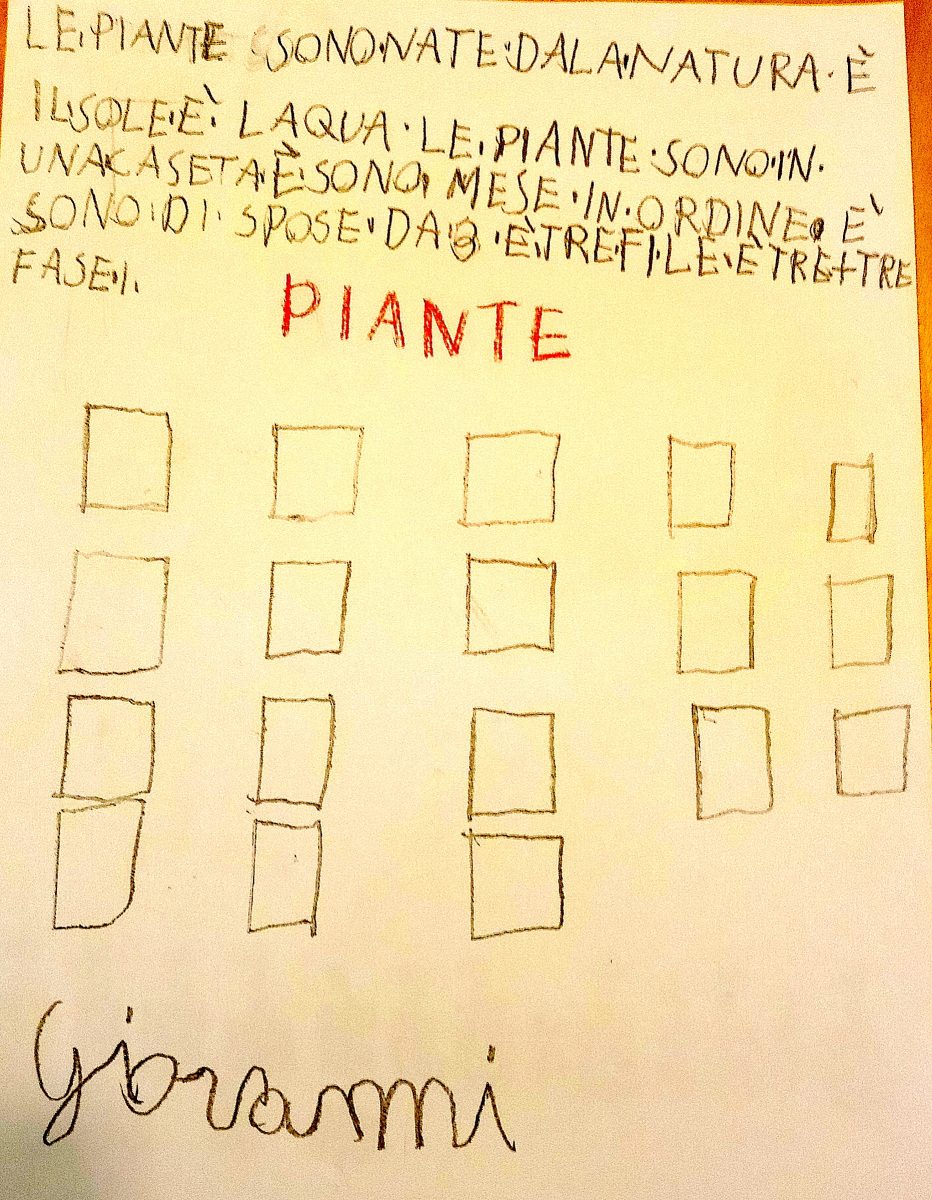 LE·PIANTE SONO·NATE·DALA·NATURA·È
IL·SOLE·È· LAQUA·LE·PIANTE·SONO·IN·
UNA CASETA·È·SONO· MESE·IN·ORDINE· È
SONO·DI·SPOSE·DA·3·È·TRE·FILE·È TRE+TRE
FA SE·I.
PIANTE
Giovanni